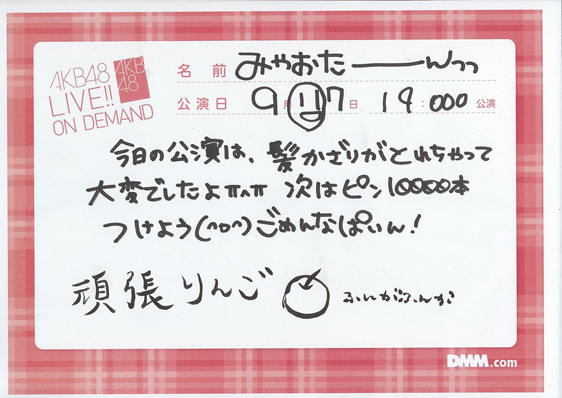 AKB48
LIVE!!
ON DEMAND
AKB
48
名 前 みやおたーーーんっっ
公演日 9月 17日 19:000 公演
今日の公演は、髪かざりがとれちゃって
大変でしたよπ^π 次はピン10000本
つけよう(^o^)ごめんなぱいん!
頑張りんご
DMM.com